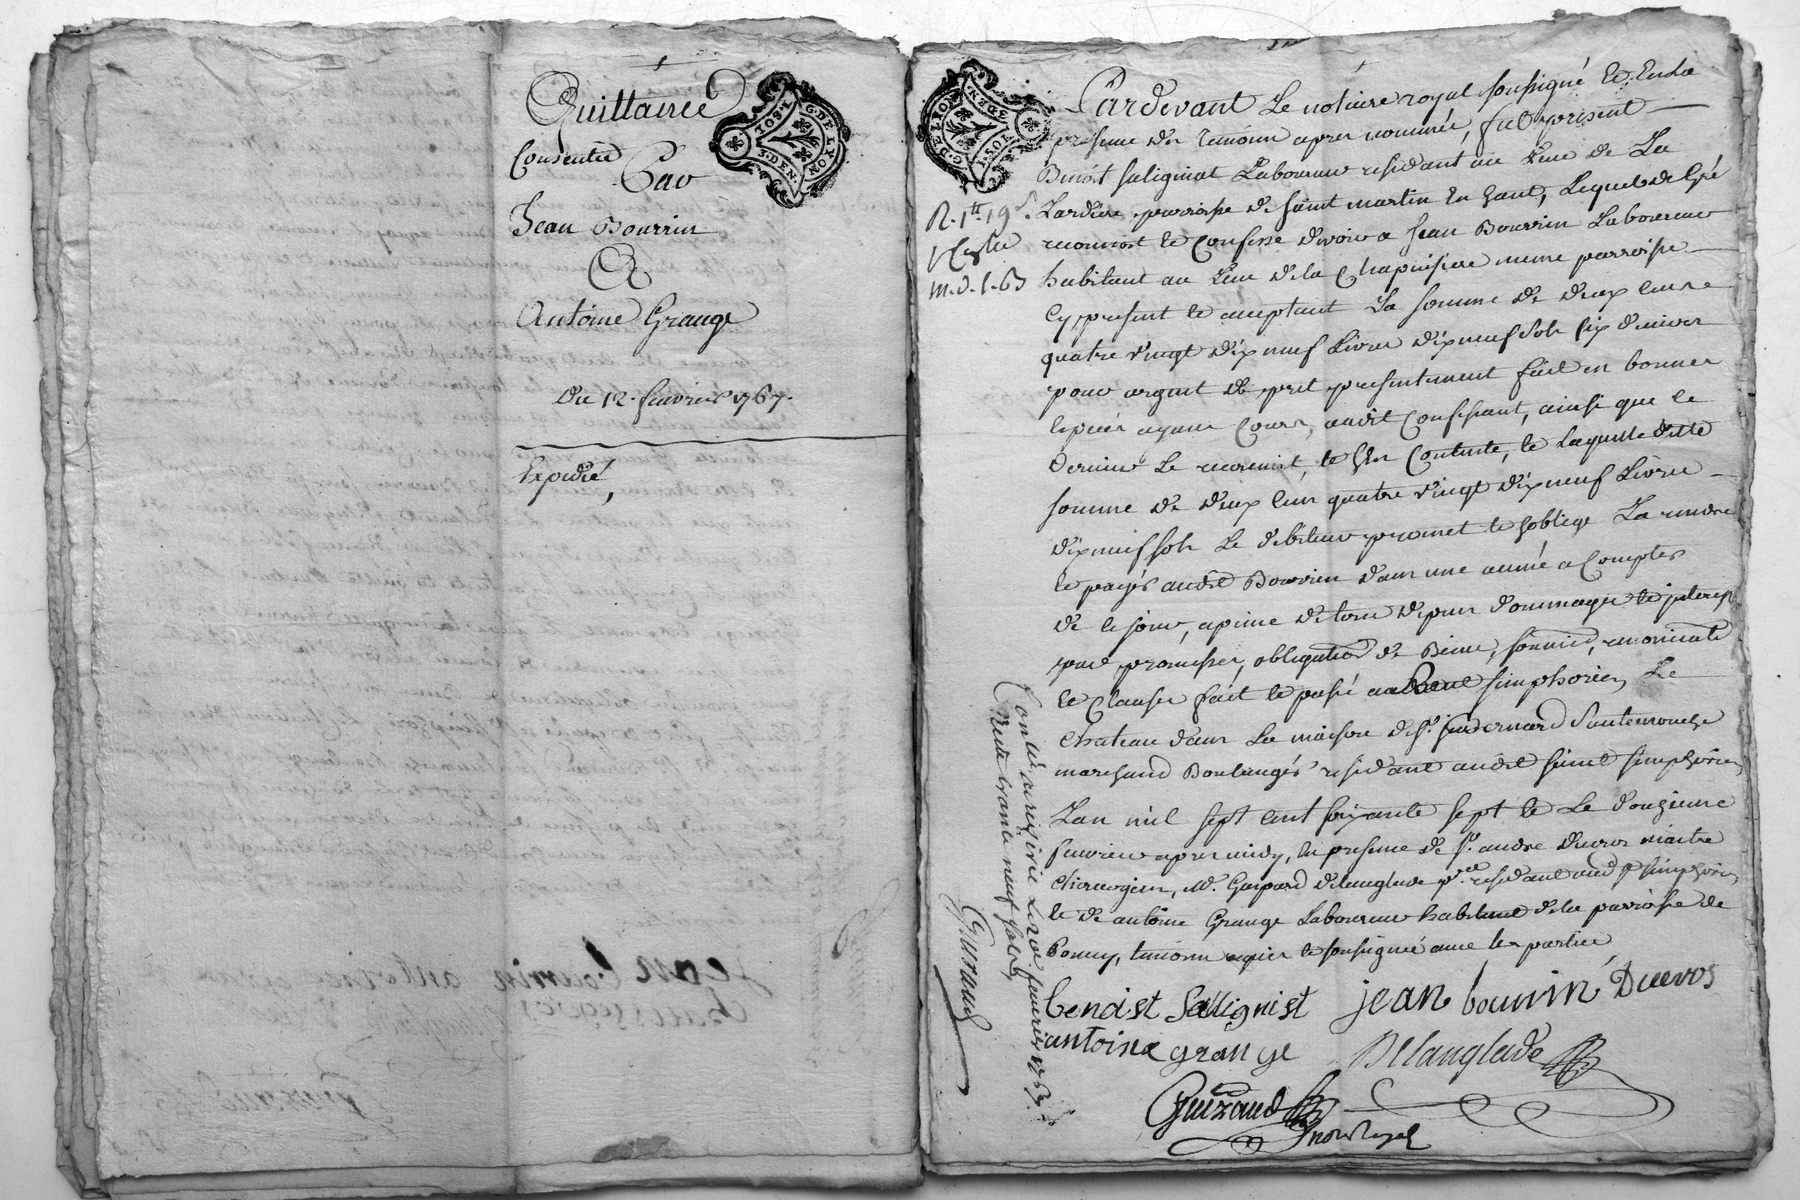 Quittance
Consentie
Par
Jean Bourrin
A
Antoine Grange
Du 12. fevrier 1767.
Expedié,
G. DE LYON
1 SOL
3. DEN.
G. DE LYON
1 SOL
3 DEN.
R. 1tt 19s.
m.d. 1. 63
Pardevant Le notaire royal soussigné et En la
presence des temoins apres nommés, fut present
Benoît salignat Laboureur residant au lieu de La
Lardiere paroisse de saint martin En haut, Lequel de Gré
reconnoit et Confesse devoir a Jean Bourrin Laboureur
habitant au Lieu de la Chapuisiere meme parroisse
Cy present et acceptant La somme de deux cent
quatre vingt dix neuf Livres dix neuf sols six deniers
pour argent de pret presentement fait en bonnes
Especes ayant Cours, audit Confessant, ainsi que ce
dernier Le reconnoit, et s'en Contente, et Laquelle ditte
somme de deux cens quatre vingt dix neuf Livres
dix neuf sols Le debiteur promet et s'oblige La rendre
et payer audit Bourrin dans une année a Compter
de ce jour, a peine de tous depens dommages et interests
par promesses, obligation de Biens, soumis, renonciations
et Clauses fait et passé au Bourg simphorien Le
chateau dans La maison de sr. Bernard
marchand Boulanger residant audit saint simphorien
L'an mil sept cent soixante sept et Le douzieme
fevrier apres midy, En presence de sr. andré Duvros maitre
chirurgien, Mr. Gaspard delanglade residant aud st simphorien
et de antoine Grange Laboureur habitant de la parroisse de
Pomey, temoins requis et soussignés avec les parties,
benoist Sallignist jean bourrin Duvros
antoine grange Delanglade
Guizaud
nore Royal
Controlé a st simphorien Le Xxe. fevrier 1767.
Reçu trente neuf sols
Guizaud